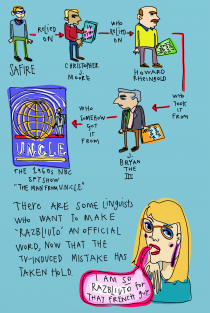 RELIED
ON
WHO
RELIED
ON
SAFIRE
CHRISTOPHER
J.
MOORE
HOWARD
RHEINGOLD
WHO
TOOK
IT FROM
J.
BRYAN
THE
III
WHO
SOMEHOW
GOT
IT FROM
U.N.C.L.E
THE 1960s NBC
SPY SHOW
"THE MAN FROM U.N.C.L.E"
THERE ARE SOME LINGUISTS
WHO WANT TO MAKE
'RAZBLIUTO' AN OFFICIAL
WORD, NOW THAT THE
TV-INDUCED MISTAKE HAS
TAKEN HOLD.
I AM SO
RAZBLIUTO for
THAT FRENCH guy